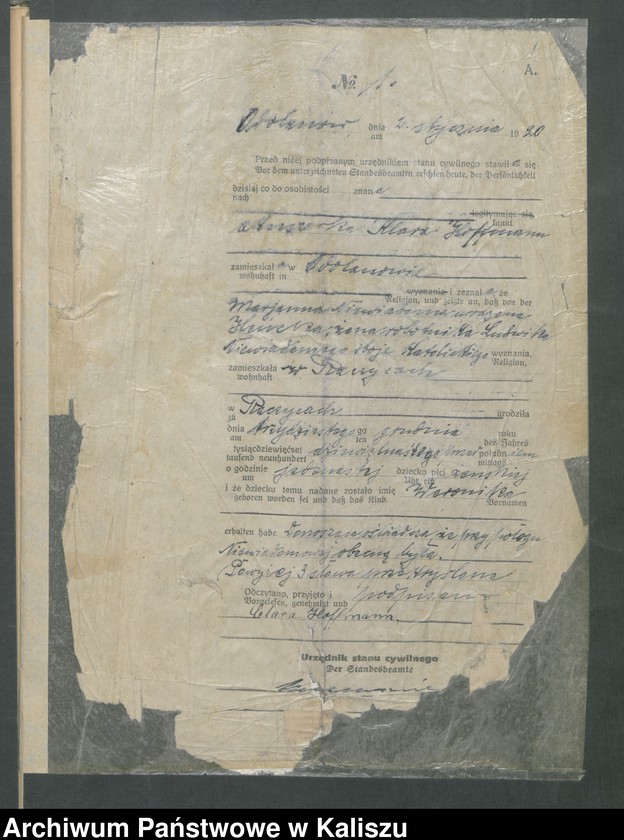 A.
№ 1.
Odolanow, dnia 2. stycznia 1920
am
Przed niżej podpisanym urzędnikiem stanu cywilnego stawiła się
Vor dem unterzeichneten Standesbeamten erschien heute, der Persönlichkeit
dzisiaj co do osobistości znana
nach
legitymując się,
kannt
akuszerka Klara Hoffmann
zamieszkała w Odolanowie
wohnhaft in
wyznania i zeznała, że
Religion, und zeigte an, daß von der
Marjanna Niewiadoma urodzona
żona robotnika Ludwika
Niewiadomego oboje katolickiego wyznania,
Religion,
zamieszkała w Raczycach
wohnhaft
w Raczycach urodziła
zu
dnia trzydziestego grudnia roku
am ten des Jahres
tysiącdziewięćset dziewiętnastego przed południem
tausend neunhundert mittags
o godzinie jedenastej dziecko płci żeńskiej
um Uhr ein
i że dziecku temu nadane zostało imię Weronika
geboren worden sei und daß das Kind Vornamen
erhalten habe. Donosząca oświadcza, że przy połogu
Niewiadomej obecną była.
Powyżej 3 słowa przekreślono
Odczytano, przyjęto i podpisano
Vorgelesen, genehmigt und
Clara Hoffmann.
Urzędnik stanu cywilnego
Der Standesbeamte
Archiwum Państwowe w Kaliszu